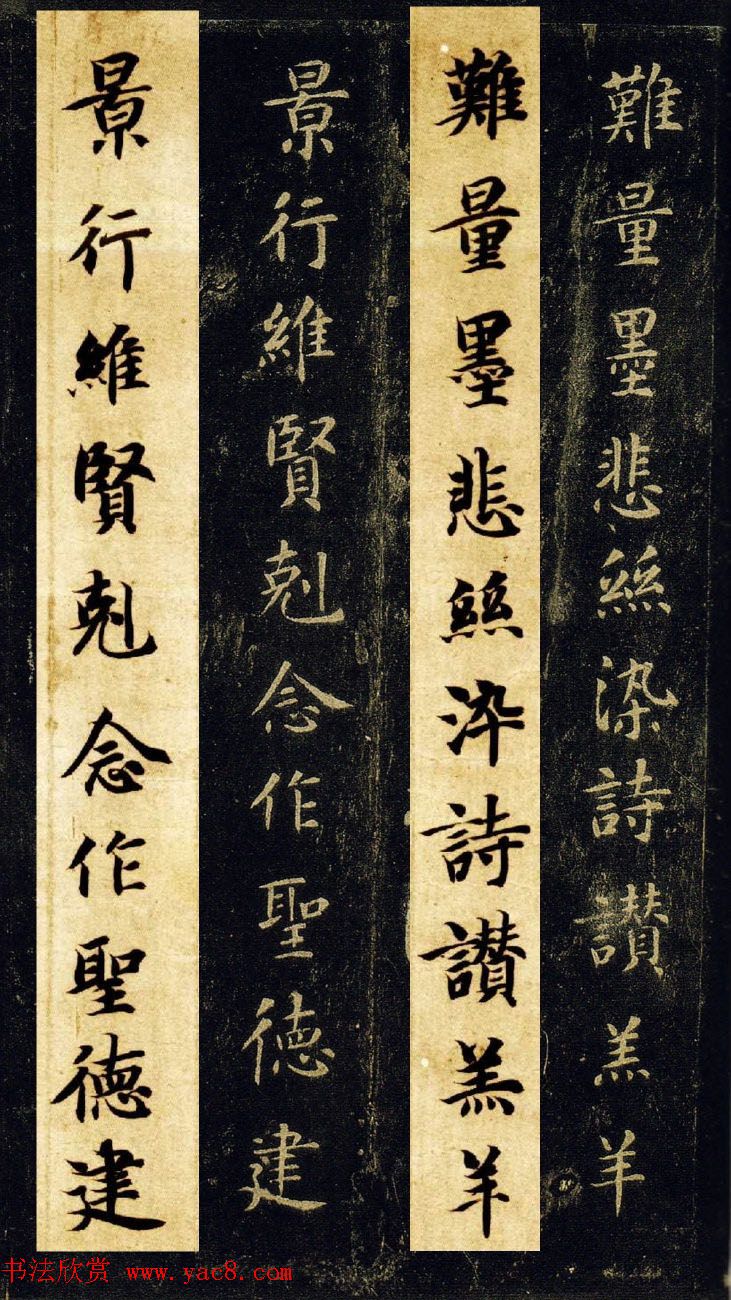 難量墨悲絲染詩讃羔羊
難量墨悲絲染詩讃羔羊
景行維賢剋念作聖德建
景行維賢剋念作聖德建
书法欣赏 www.yac8.com